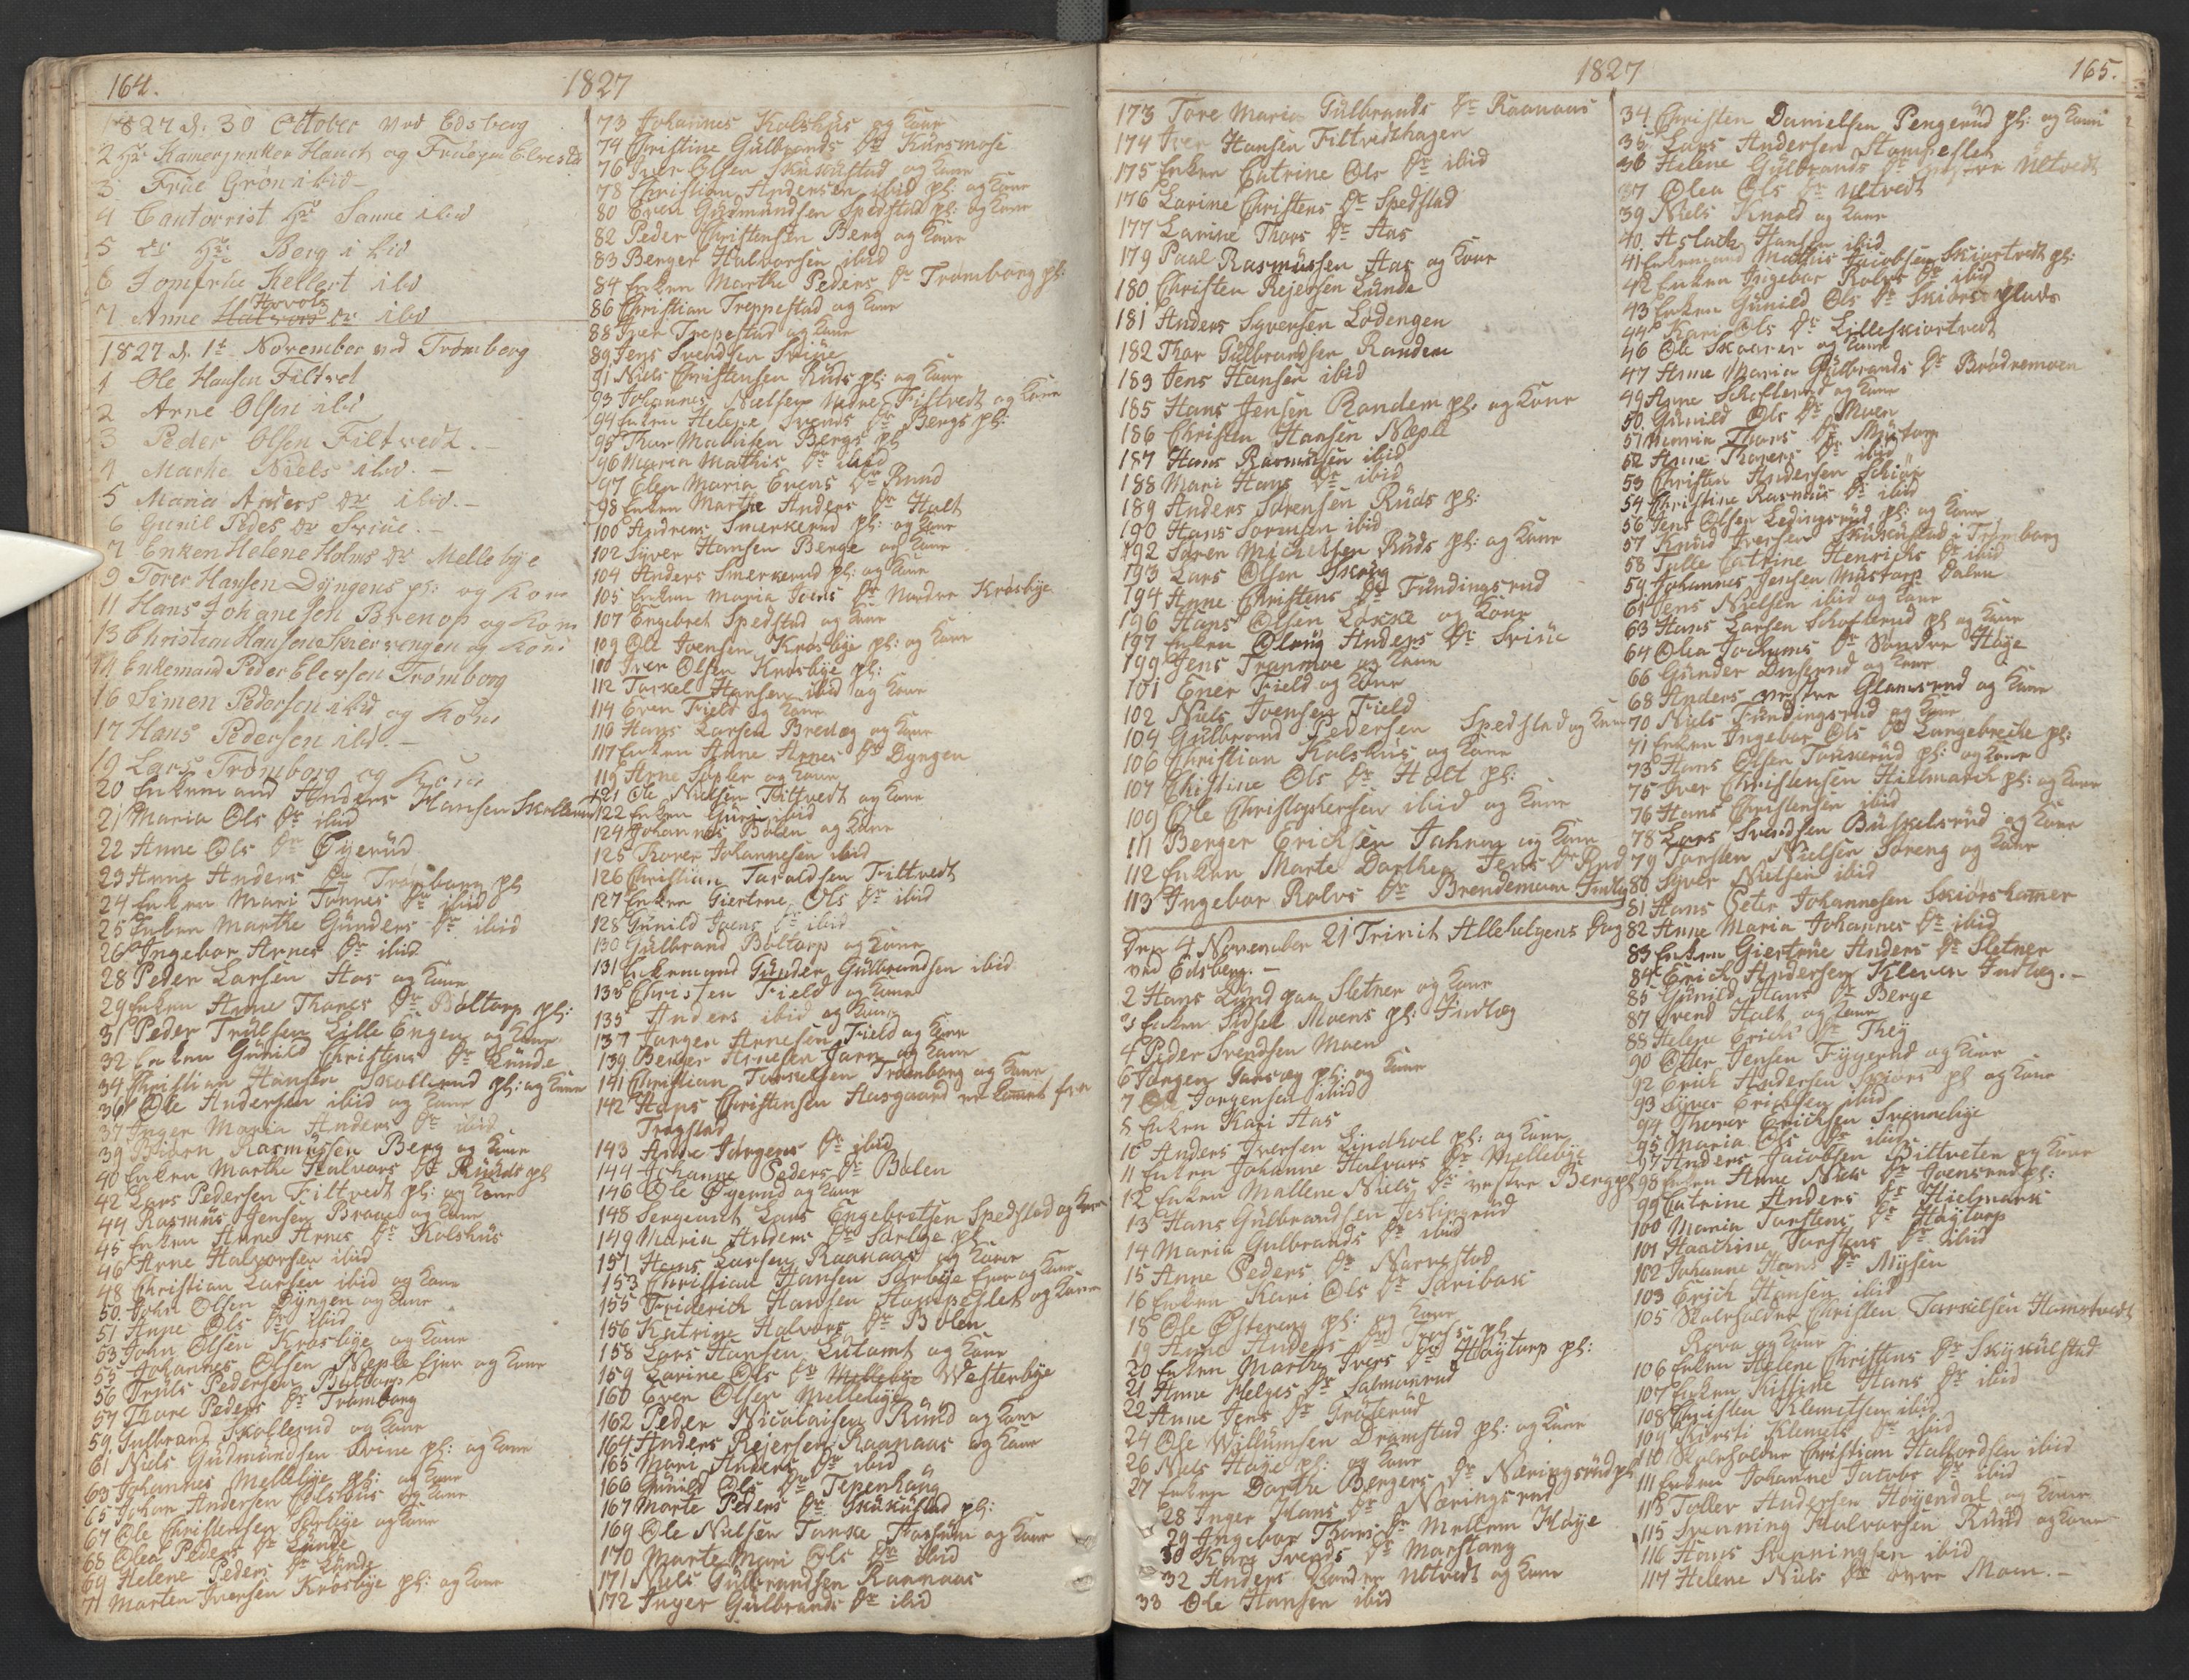 164.
1827
1827 d. 30 October ved Edsberg
2 Hr Kamerjunker Hauch og Frue
3 Frue Grøn ibid
4 Cantorist Hr Sanne ibid
5 do Hr Berg ibid
6 Jomfrue Kellert ibd
Arvols
7 Anne Dr ibd
1827 d. 1t November ved Trømborg
1 Ole Hansen Filtvet
2 Arne Olsen ibd
3 Peder Olsen Filtvedt.
4 Marte Niels ibd.
5 Maria Anders Dr ibd.
6 Gunil Dr Sviue.
7 Enken Helene Holms Dr Mellebye
9 Torer Hansen Dyngens pl: og Kone
11 Hans Johanesen Brenop og Kone
13 Christian Hansen og Kone
14 Enkemand Peder Elevsen Trømborg
16 Simen Pedersen ibid og Kone
17 Hans Pedersen ibd.
19 Lars Trømborg og Kone
20 Enkemand Anders Hansen Skollerud
21 Maria Ols Dr ibid
22 Anne Ols Dr Øyerüd
23 Anne Anders Dr Tromborg pl
24 Enken Mari Tønnes Dr ibid
25 Enken Marthe Günders Dr ibid
26 Ingebor Arnes Dr ibid
28 Peder Larsen Aas og Kone
29 Enken Anne Thores Dr Boltorp pl:
31 Peder Trülsen Lille Engen og Kone
32 Enken Günild Christens Dr Lünde
34 Christian Hansen Skollerud pl: og Kone
36 Ole Andersen ibid og Kone
37 Inger Maria Anders Dr ibid
39 Biørn Rasmüssen Berg og Kone
40 Enken Marthe Halvors Dr Rüüds pl
42 Lars Pedersen Filtvedt pl: og Kone
44 Rasmüs Jensen Braae og Kone
45 Enken Anne Arnes Dr Kolshüs
46 Arne Halvorsen ibid
48 Christian Larsen ibid og Kone
50. John Olsen Dyngen og Kone
51 Anne Ols Dr ibid
53 John Olsen Krosbye og Kone
55 Johannes Olsen Neple Eier og Kone
56 Trüls Pedersen Boltorp
57 Thore Peders Dr Tromborg
59. Gulbrand Skollerud og Kone
61 Niels Güdmündsen Svine pl: og Kone
63 Johannes Mellebye pl: og Kone
65 Johan Andersen Colshus og Kone
67 Ole Christensen Sorbye og Kone
68 Olea Peders Dr Lünde
69 Helene Peders Dr Lünde
71 Morten Iversen Krosbye pl: og Kone
73 Johannes Kolshüs og Kone
74 Christine Gülbrands Dr Kürsmose
76 Iver Olsen Skükülstad og Kone
78 Christian Andersen ibid pl: og Kone
80 Even Güdmündsen Spedstad pl: og Kone
82 Peder Christensen Berg og Kone
83 Berger Halvorsen ibid
84 Enken Marthe Peders Dr Tromborg pl:
86 Christian Treppestad og Kone
88 Iver Trepestad og Kone
89 Jens Svendsen Sviüe
91 Niels Christensen Rüds pl: og Kone
93 Johannes Nielsen Nedre Filtvedt og Kone
94 Enken Helene Svends Dr Bergs pl:
95 Thor Mathisen Bergs pl
96 Maren Mathis Dr ibid
97 Elen Maria Evens Dr Ruud
98 Enken Marthe Anders Dr Holt
100 Andreas Smerkerud pl: og Kone
102 Syver Hansen Berge og Kone
104 Anders Smerkerud pl: og Kone
105 Enken Maria Joens Dr Nordre Krosbye
107 Engebret Spedstad og Kone
109 Ole Joensen Krosbye pl: og Kone
110 Iver Olsen Krosbye pl:
112 Torkel Hansen ibid og Kone
114 Even Field og Kone
116 Hans Larsen Bredeg og Kone
117 Enken Anne Arnes Dr Dyngen
119 Arne og Kone
121 Ole Nielsen Filtvedt og Kone
122 Enken Güre ibid
124 Johannes Bølen og Kone
125 Thorer Johannesen ibid
126 Christian Taraldsen Filtvedt
127 Enken Giertrue Ols Dr ibid
128 Günild Joens Dr ibid
130 Gülbrand Boltorp og Kone
131 Enkemand Günder Gülbrandsen ibid
133 Christen Field og Kone
135 Anders ibid og Kone
137 Jørgen Arnesen Field og Kone
139 Berger Arnesen Jørn og Kone
141 Christian Torkelsen Tromborg og Kone
142 Hans Christensen Aasgaard er komet fra
Trøgstad
143 Anne Jørgens Dr ibid
144 Johanne Peders Dr Bølen
146 Ole Øyerud og Kone
148 Sergeant Lars Engebretsen Spedstad og Kone
149 Maria Anders Dr Sorbye pl
151 Hans Larsen Raanaas og Kone
153 Christian Hansen Sorbye Eier og Kone
155 Friderich Hansen Stompeslet og Kone
156 Katrine Halvors Dr Bølen
158 Lars Hansen Lütamt og Kone
159 Larine Ols Dr Mellebye Vesterbye
160 Even Olsen Mellebye
162 Peder Nicolaisen Rüüd og Kone
164 Anders Rejersen Raanaas og Kone
165 Mari Anders Dr ibid
166 Günild Ols Dr Tipenhaüg
167 Marte Peders Dr Skükülstad pl:
169 Ole Nielsen Tanke Fossüm og Kone
170 Marte Mari Ols Dr ibid
171 Niels Gülbrandsen Raanaas
172 Inger Gülbrands Dr ibid
1827
165.
173 Tore Maria Gülbrands Dr Raanaas
174 Iver Hansen Filtvedthagen
175 Enken Catrine Ols Dr ibid
176 Larine Christens Dr Spedstad
177 Larine Thors Dr Aas
179 Paal Rasmüssen Aas og Kone
180 Christen Rejersen Lünde
181 Anders Syversen Lødengen
182 Thor Gülbrandsen Randem
183 Jens Hansen ibid
185 Hans Jensen Randem pl: og Kone
186 Christen Hansen Neple
187 Hans Rasmüssen ibid
188 Mari Hans Dr ibid
189 Anders Sørensen Rüds pl:
190 Hans Sørensen ibid
192 Søren Michelsen Rüds pl: og Kone
193 Lars Olsen Skoug
194 Anne Christens Dr Fundingsrud
196 Hans Olsen Løkke og Kone
197 Enken Oloug Anders Dr Sviüe
199 Jens Tranmoe og Kone
101 Ener Field og Kone
102 Niels Joensen Field
104 Gülbrand Pedersen Spedstad og Kone
106 Christian Kolshüs og Kone
107 Christine Ols Dr Holt pl:
109 Ole Christophersen ibid og Kone
111 Berger Erichsen Jahren og Kone
112 Enken Marte Dorthea Jens Dr Rud
113 Ingebor Rolvs Dr Brendemoen Indleg
Den 4 November 21 Trinit Allehelgens Dag
ved Edsberg.
2 Hans Lünd paa Sletner og Kone
3 Enken Sidsel Moens pl: Indleg
4 Peder Svendsen Moen
6 Jørgen pl: og Kone
7 Ole Jørgensen ibid
8 Enken Kari Aas
10 Anders Iversen Lindhoel pl: og Kone
11 Enken Johanne Halvors Dr Mellebye
12 Enken Mallene Niels Dr vestre Berg pl
13 Hans Gülbrandsen Jeslingrüd
14 Maria Gulbrands Dr ibid
15 Anne Peders Dr Narvestad
16 Enken Kari Ols Dr Saribak
18 Ole Østereng pl: og Kone
19 Anne Anders Dr pl
20 Enken Marthe Ivers Dr Høytorp pl:
21 Anne Helges Dr Salmonrud
22 Anne Jens Dr Grøterüd
24 Ole Willumsen Dramstad pl: og Kone
26 Niels Høye pl: og Kone
27 Enken Dorthe Bergers Dr Næringsrüd pl
28 Inger Hans Dr Næringsrud
29 Ingebor Thors Dr Mellem Høye
30 Kari Svends Dr Morstang
32 Anders Søndre Ultvedt og Kone
33 Ole Hansen ibid
34 Christen Danielsen Pengerüd pl: og Kone
35 Lars Andersen Stompeslet
36 Helene Gülbrands Dr Ultvedt
37 Olea Ols Dr Ultvedt
39 Niels Knold og Kone
40. Aslach Hansen ibid
41 Enkemand Mathis Jacobsen Skiortvedt pl:
42 Enken Ingebor Rolvs Dr ibid
43 Enken Günild Ols Dr Skiørs Plads
44 Kari Ols Dr Lilleskiortvedt
46 Ole og Kone
47 Anne Maria Gülbrands Dr Brødremoen
49 Arne Schofterud og Kone
50. Günild Ols Dr Moen
51 Maria Thors Dr
52 Anne Thorers Dr ibid
53 Christen Andersen Schiør
54 Christine Rasmus Dr ibid
56 Jens Olsen Ledingsrüd pl: og Kone
57 Knüd Iversen Skükülstad i Trømborg
58 Tulle Catrine Henrichs Dr ibid
59. Johannes Jensen Dalen
61 Jens Nielsen ibid og Kone
63 Hans Larsen Schofterud pl og Kone
64 Olia Jochums Dr Søndre Høye
66 Günder og Kone
68 Anders vestre Glamsrud og Kone
70 Niels Fündingsrud og Kone
71 Enken Ingebor Ols Dr Langebrecke pl:
73 Hans Olsen Toskerüd pl: og Kone
75 Iver Christensen Hielmark pl: og Kone
76 Hans Christensen ibid
78 Lars Svendsen Büskelsrüd og Kone
79 Torsten Nielsen Soreng og Kone
80 Syver Nielsen ibid
81 Hans Peter Johannesen Skiørshamer
82 Anne Maria Johannes Dr ibid
83 Enken Giertrüe Anders Dr Sletner
84 Erich Andersen Kleven Indleg.
85 Günild Hans Dr Berge
87 Svend Holt og Kone
88 Helene Erichs Dr They
90 Otter Jensen Fygerud og Kone
92 Erich Andersen Skiørs pl og Kone
93 Syver Erichsen ibid
94 Thorer Erichsen Svennebye
95 Maria Ols Dr ibid
97 Anders Jacobsen Bilitveten og Kone
98 Enken Anne Niels Dr Joensrud pl:
99 Catrine Anders Dr Hielmark
100 Maria Torstens Dr Høytorp
101 Haachine Torstens Dr ibid
102 Johanne Hans Dr Mysen
103 Erich Hansen ibid
105 Skoleholder Christen Torkelsen Homstvedt
Rova og Kone
106 Enken Helene Christens Dr Skykülstad
107 Enken Hans Dr ibid
108 Christen Klemetsen ibid
109 Kirsti Klemets Dr ibid
110 Skoleholder Christian Halvordsen ibid
111 Enken Johanne Jacobs Dr ibid
113 Toller Andersen Høyendal og Kone
115 Svenning Halvorsen Rüüd og Kone
116 Hans Svenningsen ibid
117 Helene Niels Dr øvre Moen.